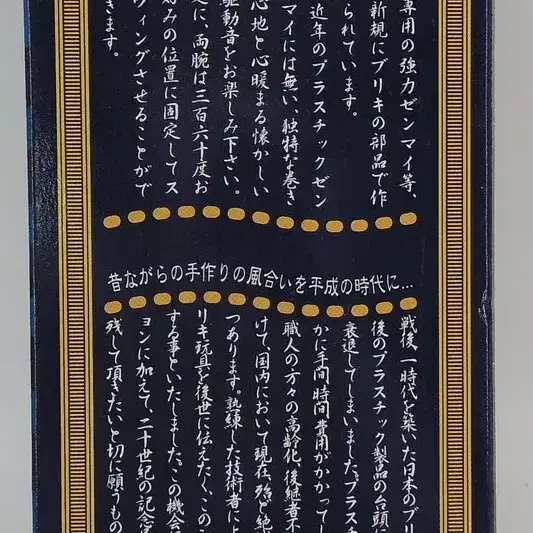 専用の強力ゼンマイ等、
新規にブリキの部品で作
られています。
近年のプラスチックゼン
マイには無い、独特な巻き
心地と心暖まる懐かしい
駆動音をお楽しみ下さい。
に、両腕は三百六十度お
好みの位置に固定してス
ウィングさせることがで
きます。
昔ながらの手作りの風合いを平成の時代に…
戦後、一時代を築いた日本のブリ
後のプラスチック製品の台頭に
衰退してしまいました。プラスチ
かに手間、時間、費用がかかってし
職人の方々の高齢化、後継者不
けて、国内において現在、殆ど絶
つあります。熟練した技術者によ
リキ玩具を後世に伝えたく、このこ
する事といたしました。この機会に
ョンに加えて、二十世紀の記念
残して頂きたいと切に願うもの